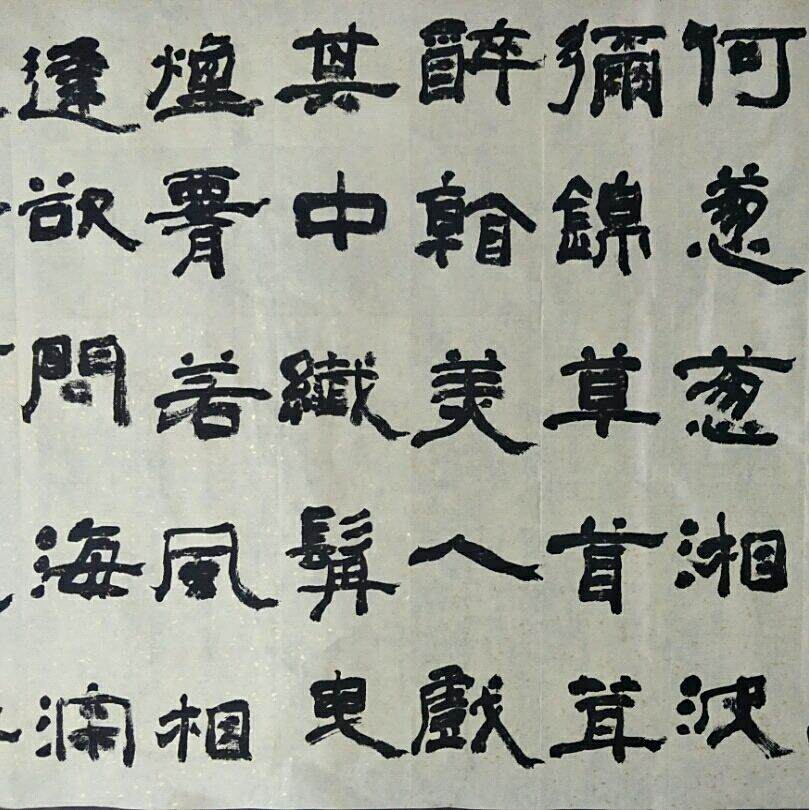 何葱葱湘波
彌錦草首茸
醉翰美人戲
其中纖髯曳
煙若風相
逢欲問海深